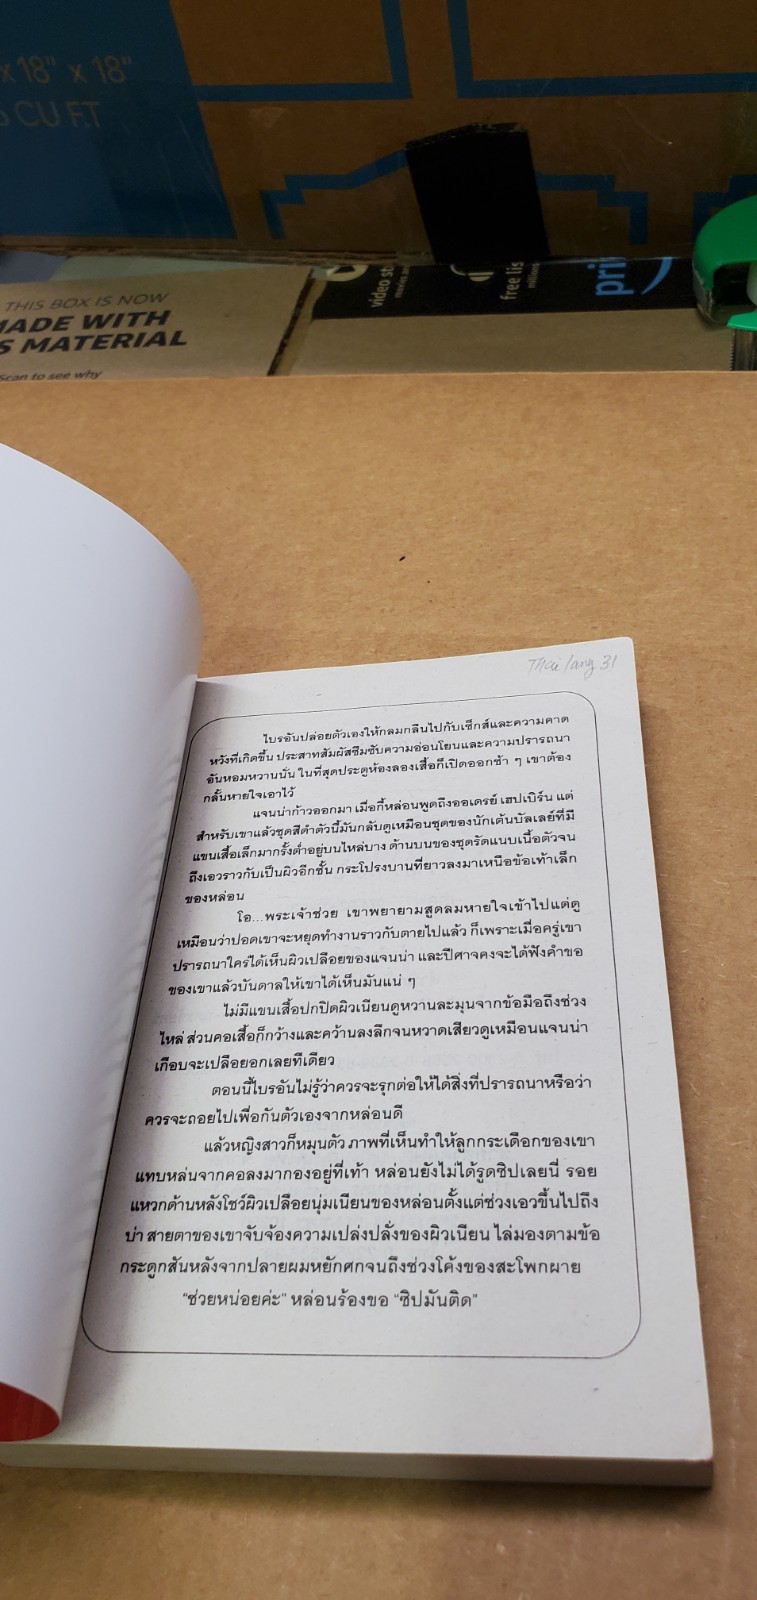 x 18" x 18"
CU F.T
THIS BOX IS NOW
MADE WITH
S MATERIAL
Scan to see why
video st
free lis
pri
Thai lang 31
ไบรอันปล่อยตัวเองให้กลมกลืนไปกับเซ็กส์และความคาด
หวังที่เกิดขึ้น ประสาทสัมผัสซึมซับความอ่อนโยนและความปรารถนา
อันหอมหวานนั่น ในที่สุดประตูห้องลองเสื้อก็เปิดออกช้า ๆ เขาต้อง
กลั้นหายใจเอาไว้
แจนน่าก้าวออกมา เมื่อกี้หล่อนพูดถึงออเดรย์ เฮปเบิร์น แต่
สำหรับเขาแล้วชุดสีดำตัวนี้มันกลับดูเหมือนชุดของนักเต้นบัลเลย์ที่มี
แขนเสื้อเล็กมากรั้งต่ำอยู่บนไหล่บาง ด้านบนของชุดรัดแนบเนื้อตัวจน
ถึงเอวราวกับเป็นผิวอีกชั้น กระโปรงบานที่ยาวลงมาเหนือข้อเท้าเล็ก
ของหล่อน
โอ...พระเจ้าช่วย เขาพยายามสูดลมหายใจเข้าไปแต่ดู
เหมือนว่าปอดเขาจะหยุดทำงานราวกับตายไปแล้ว ก็เพราะเมื่อครู่เขา
ปรารถนาใคร่ได้เห็นผิวเปลือยของแจนน่า และปีศาจคงจะได้ฟังคำขอ
ของเขาแล้วบันดาลให้เขาได้เห็นมันแน่ ๆ
ไม่มีแขนเสื้อปกปิดผิวเนียนดูหวานละมุนจากข้อมือถึงช่วง
ไหล่ ส่วนคอเสื้อก็กว้างและคว้านลงลึกจนหวาดเสียวดูเหมือนแจนน่า
เกือบจะเปลือยอกเลยทีเดียว
ตอนนี้ไบรอันไม่รู้ว่าควรจะรุกต่อให้ได้สิ่งที่ปรารถนาหรือว่า
ควรจะถอยไปเพื่อกันตัวเองจากหล่อนดี
แล้วหญิงสาวก็หมุนตัว ภาพที่เห็นทำให้ลูกกระเดือกของเขา
แทบหล่นจากคอลงมากองอยู่ที่เท้า หล่อนยังไม่ได้รูดซิปเลยนี่ รอย
แหวกด้านหลังโชว์ผิวเปลือยนุ่มเนียนของหล่อนตั้งแต่ช่วงเอวขึ้นไปถึง
บ่า สายตาของเขาจับจ้องความเปล่งปลั่งของผิวเนียน ไล่มองตามข้อ
กระดูกสันหลังจากปลายผมหยักศกจนถึงช่วงโค้งของสะโพกผาย
"ช่วยหน่อยค่ะ" หล่อนร้องขอ "ซิปมันติด"